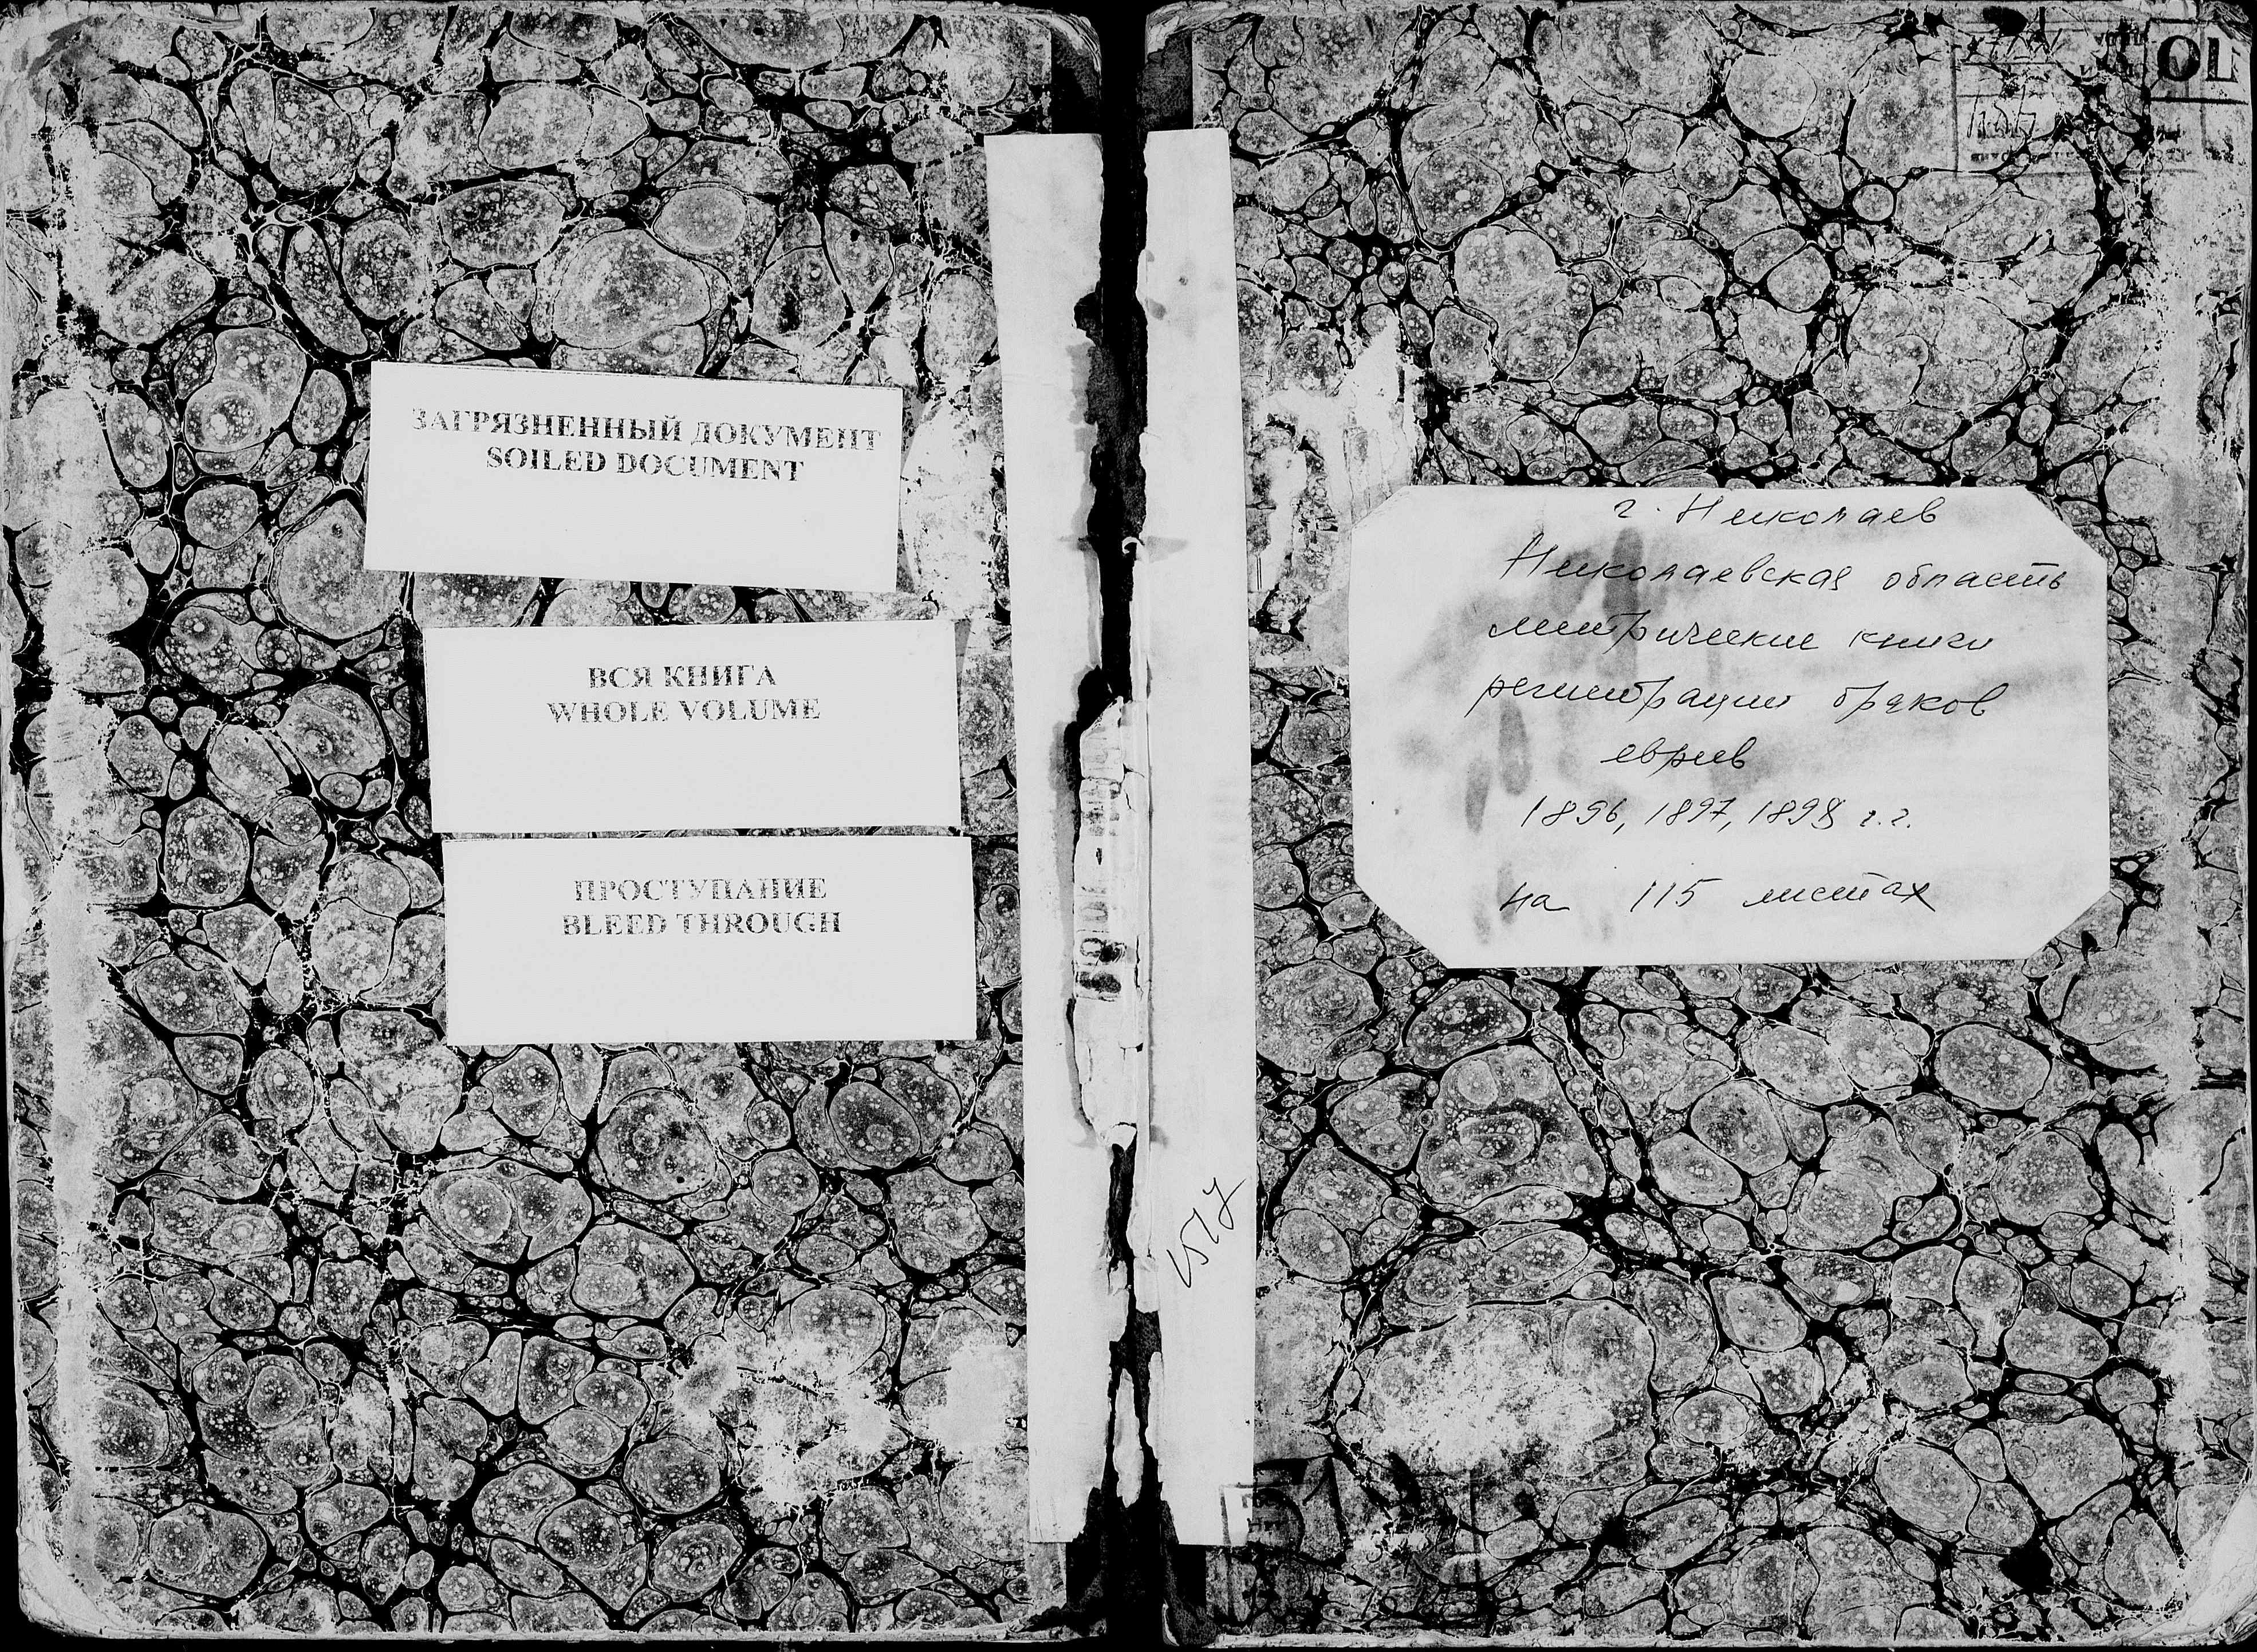 ЗАГРЯЗНЕННЫЙ ДОКУМЕНТ
SOILED DOCUMENT
ВСЯ КНИГА
WHOLE VOLUME
ПРОСТУПАНИЕ
BLEED THROUGH
1517
г. Николаев
Николаевская область
метрические книги
регистрации браков
евреев
1896, 1897, 1898 г.г.
на 115 листах